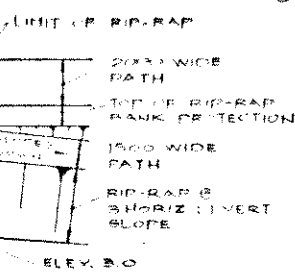 LIMIT OF RIP-RAP
2000 WIDE
PATH
TOP OF RIP-RAP
BANK PROTECTION
1500 WIDE
PATH
RIP-RAP @
3 HORIZ : 1 VERT
SLOPE
ELEV. 3.0